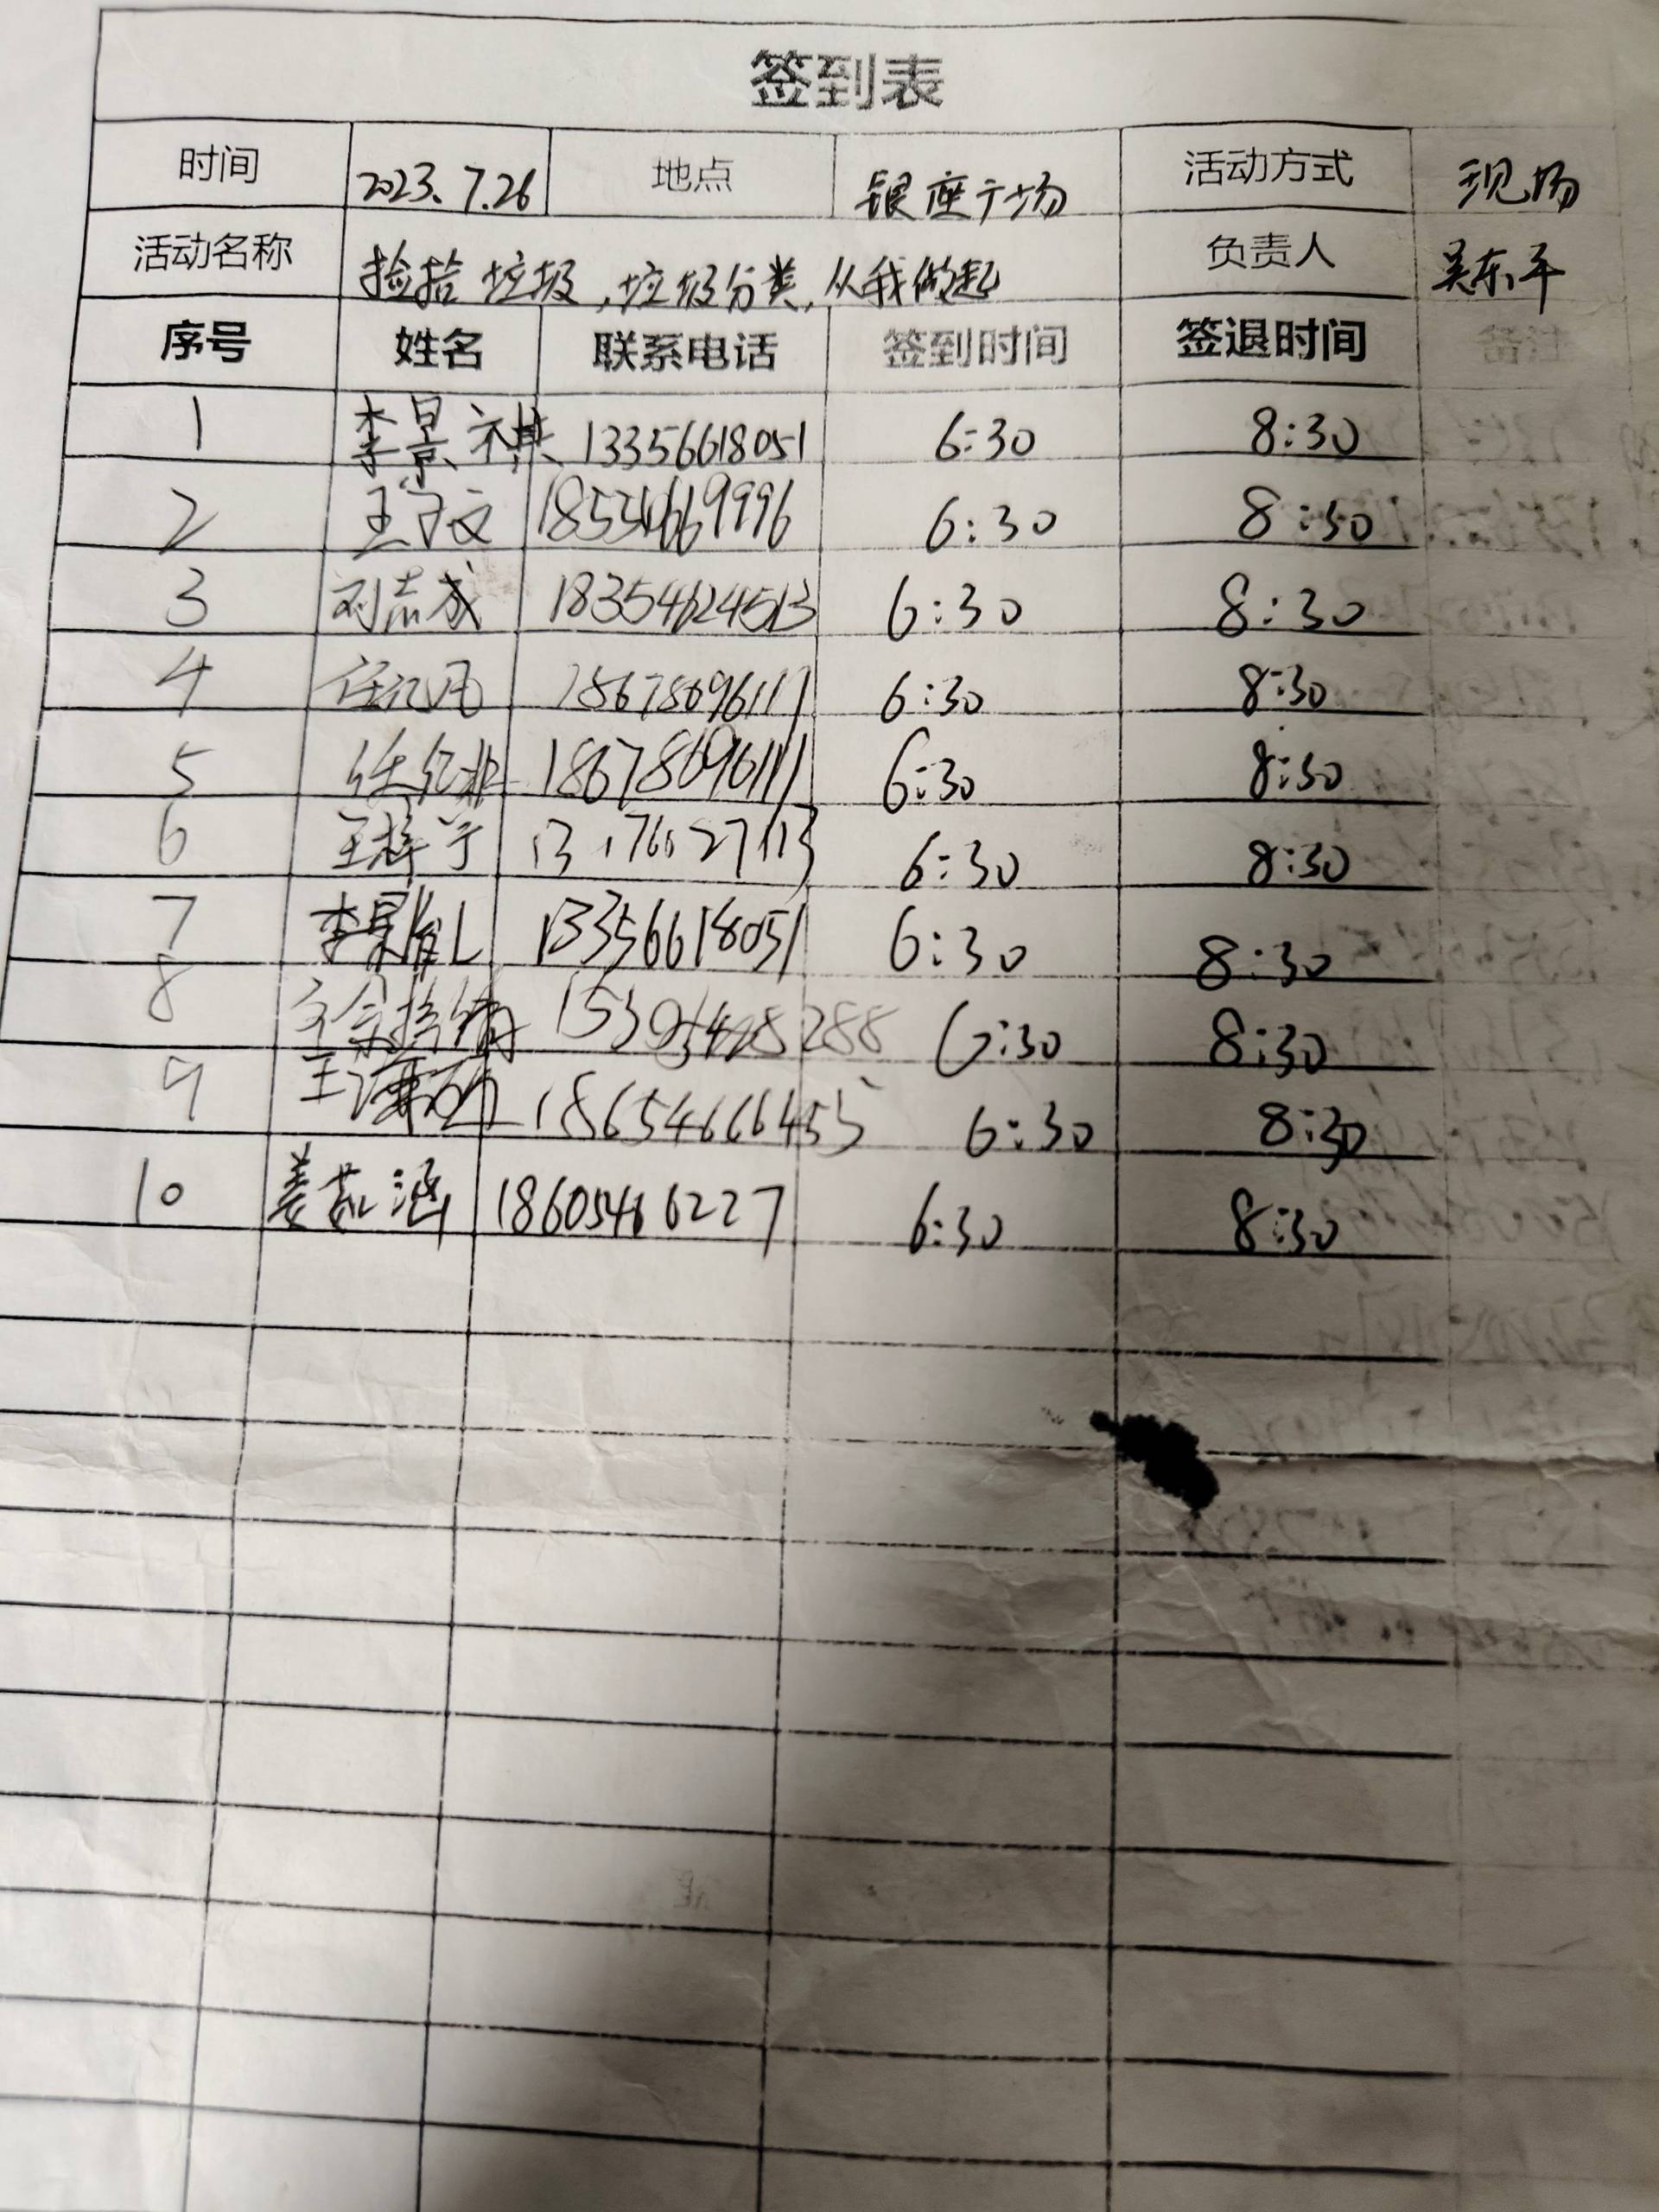 签到表
时间 2023.7.26 地点 银座广场 活动方式 现场
活动名称 捡拾垃圾,垃圾分类,从我做起 负责人 吴东平
序号 姓名 联系电话 签到时间 签退时间 备注
1 李景祺 13356618051 6:30 8:30
2 王子文 6:30 8:30
3 刘志成 18354624513 6:30 8:30
4 6:30 8:30
5 18678696111 6:30 8:30
6 王梓宁 6:30 8:30
7 13356618051 6:30 8:30
8 6:30 8:30
9 18654666455 6:30 8:30
10 姜茹涵 18605466227 6:30 8:30